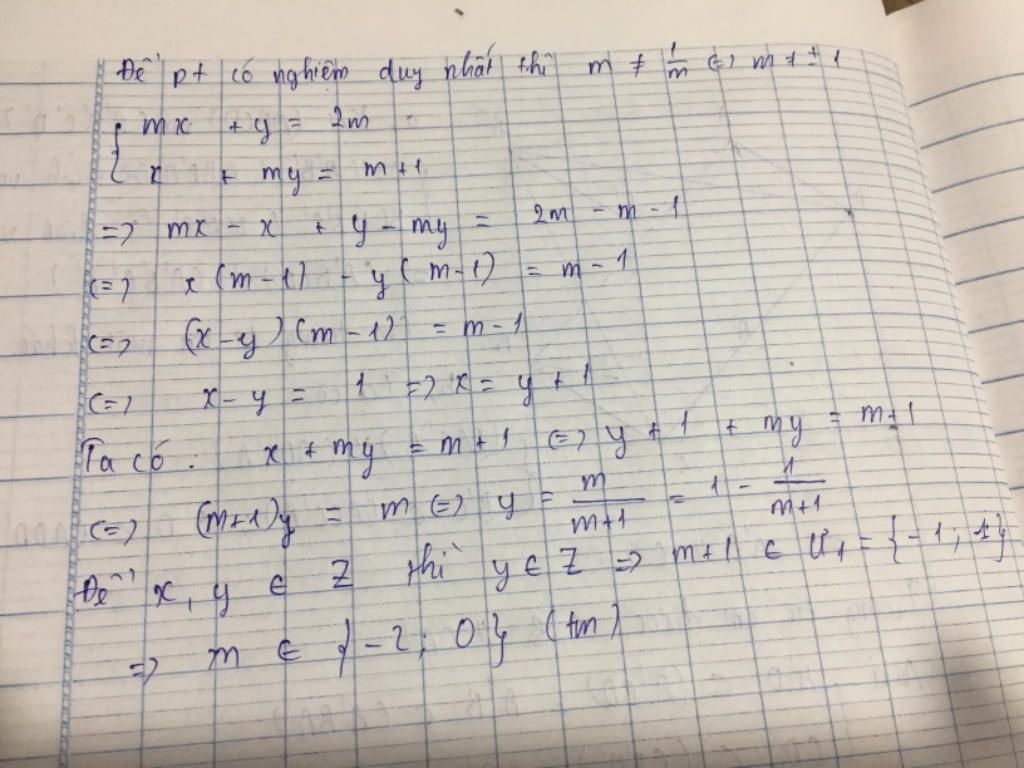 Để pt có nghiệm duy nhất thì m ≠ 1/m <=> m ≠ ± 1
{ mx + y = 2m
x + my = m+1
=> mx - x + y - my = 2m - m - 1
<=> x(m-1) - y(m-1) = m-1
<=> (x-y)(m-1) = m-1
<=> x-y = 1 => x = y+1
Ta có: x + my = m+1 <=> y+1 + my = m+1
<=> (m+1)y = m <=> y = m/(m+1) = 1 - 1/(m+1)
Để x, y ∈ Z thì y ∈ Z => m+1 ∈ Ư₁ = {-1; 1}
=> m ∈ {-2; 0} (tm)